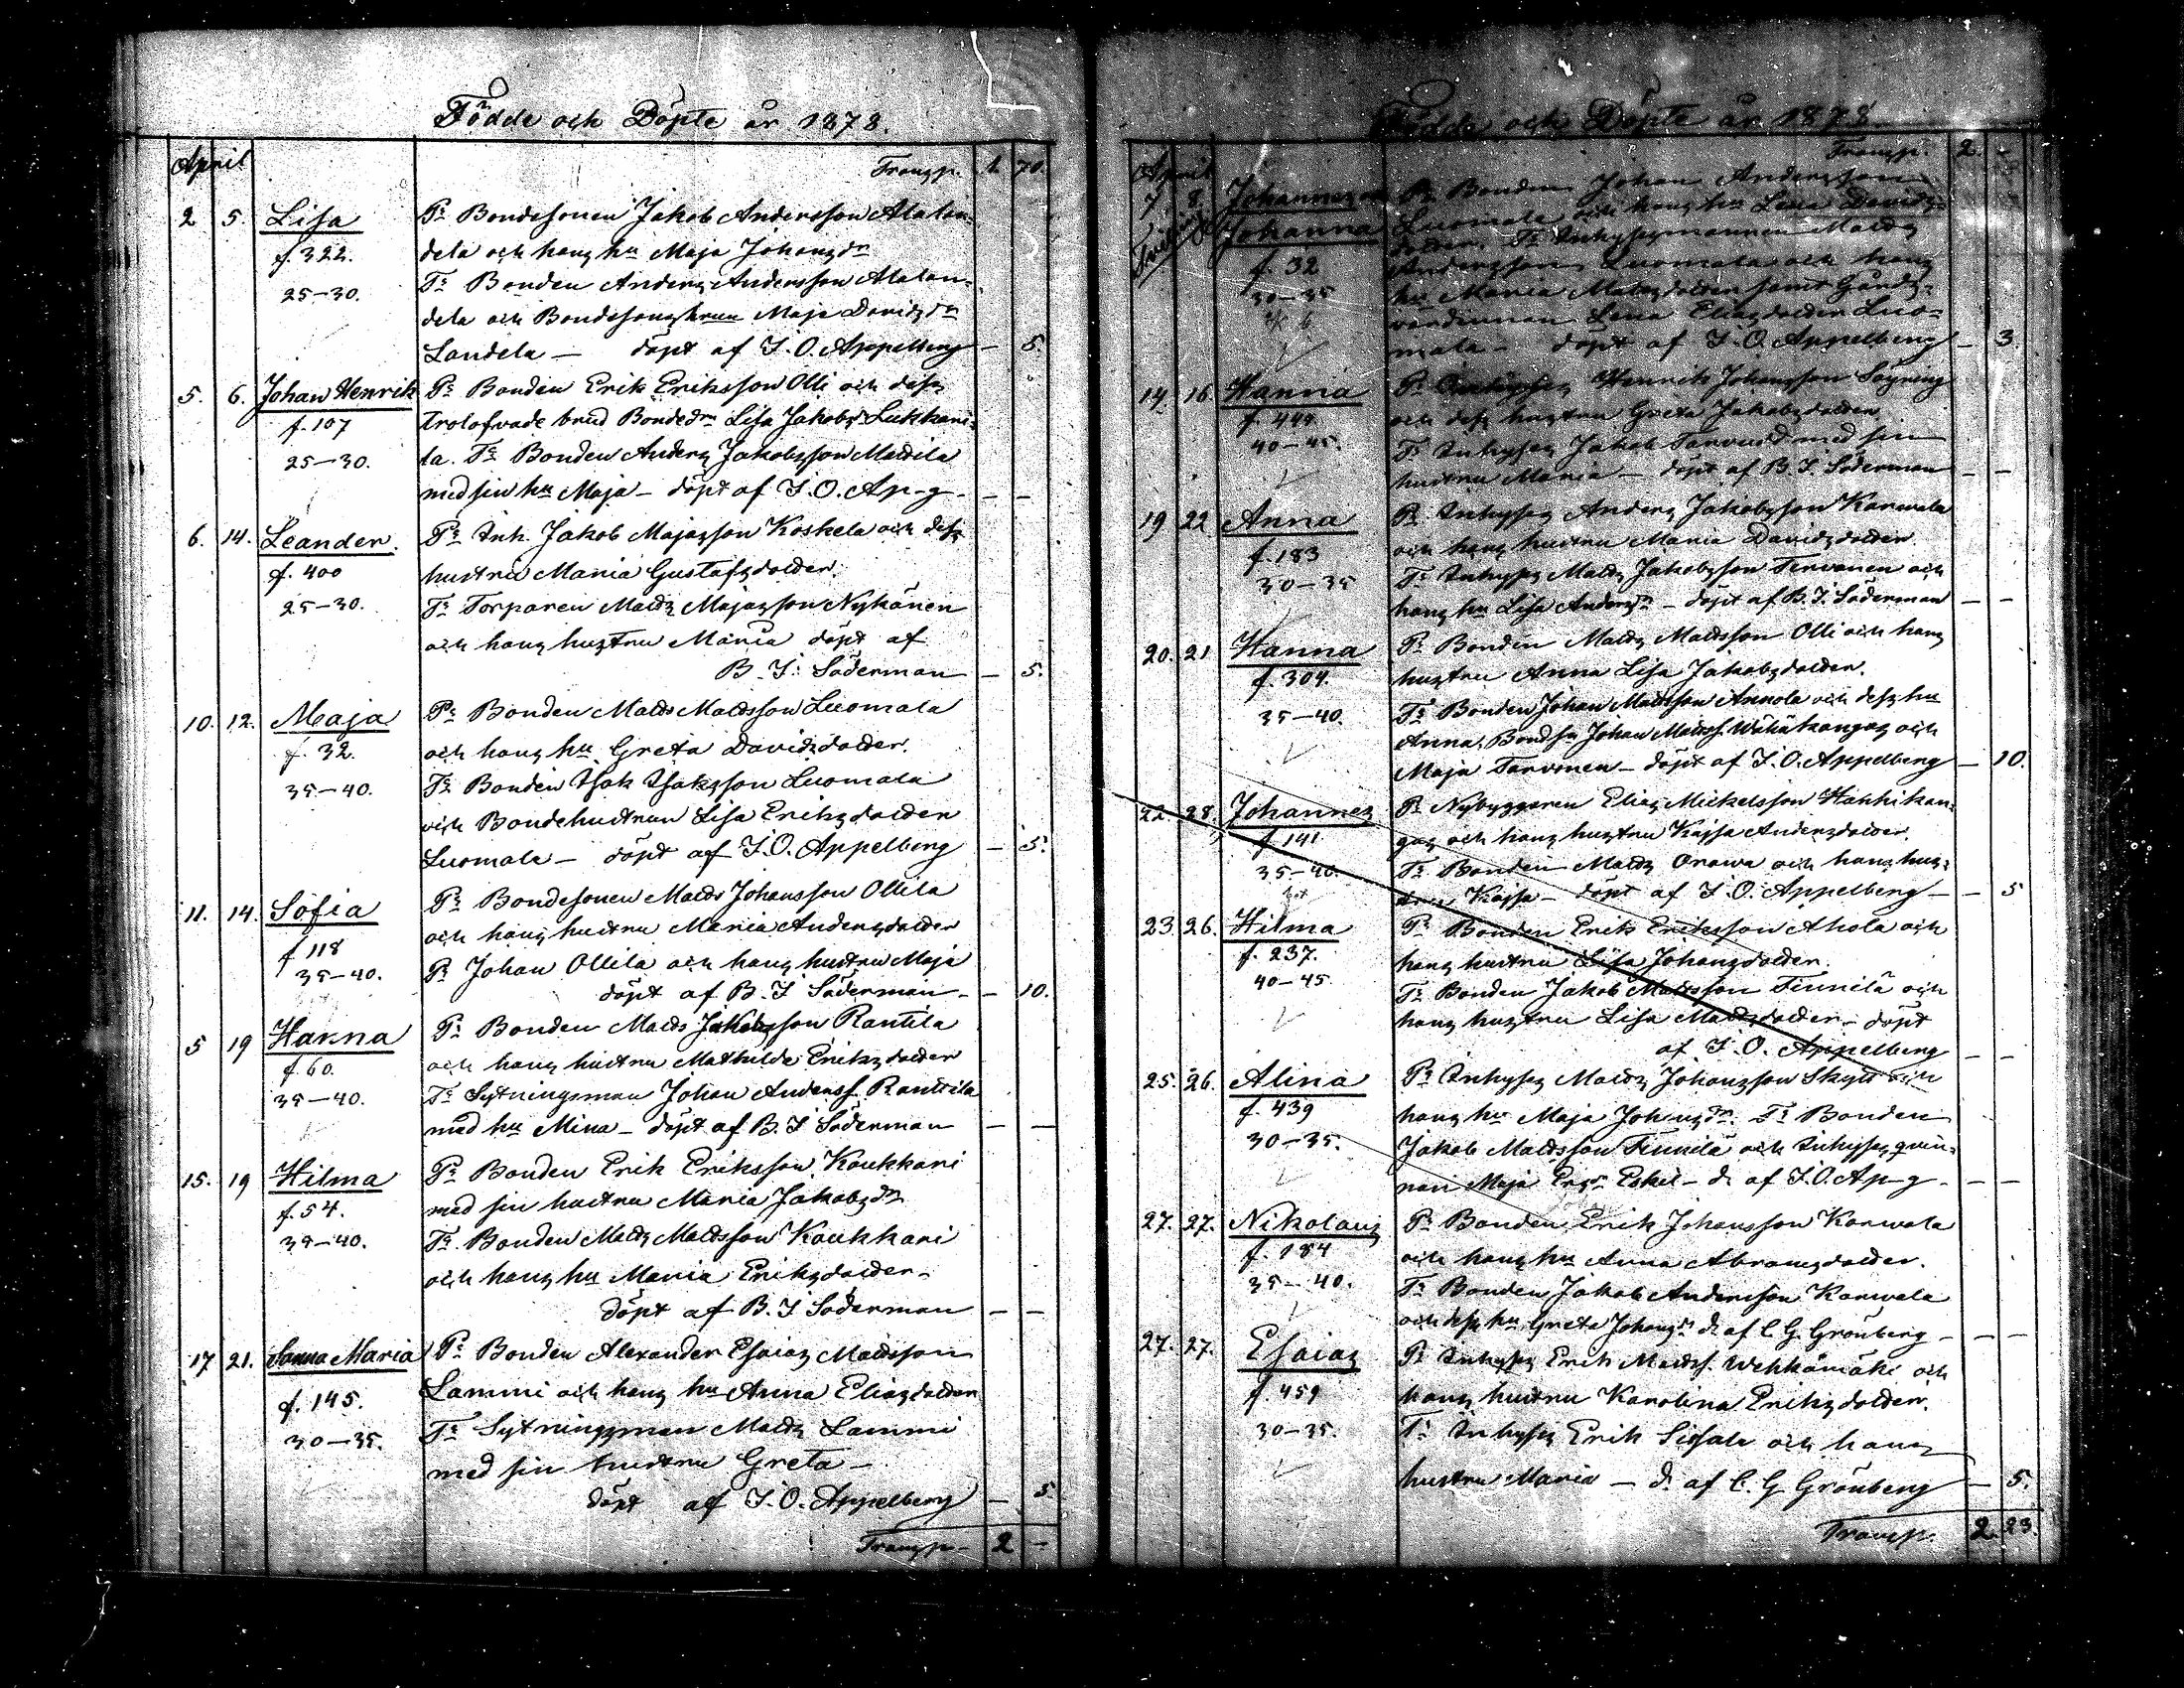 Födde och Döpte år 1878.
April
Transp. 1. 70.
2 5. Lisa Pr Bondesonen Jakob Andersson Alalan-
f. 322. dela och hans hu Maja Johansdr
25-30. Tr Bonden Anders Andersson Alalan-
dela och Bondesonshrun Maja Davidsdr
Landela — döpt af I. O. Appelberg — 5.
5. 6. Johan Henrik Pr Bonden Erik Eriksson Olli och dess
f. 107 trolofvade brud Bondedrn Lisa Jakobsdr Lukkari-
25-30. la. Tr Bonden Anders Jakobsson Mattila
med sin hu Maja — döpt af I. O. Ap-g — —
6. 14. Leander. Pr Inh. Jakob Majasson Koskela och dess
f. 400 hustru Maria Gustafsdotter.
25-30. Tr Torparen Matts Majasson Nykänen
och hans hustru Maria döpt af
B. I. Söderman — 5.
10. 12. Maja Pr Bonden Matts Mattsson Luomala
f. 32. och hans hu Greta Davidsdotter.
35-40. Tr Bonden Isak Isaksson Luomala
och Bondehustrun Lisa Eriksdotter
Luomala — döpt af I. O. Appelberg — 5.
11. 14. Sofia Pr Bondesonen Matts Johansson Ollila
f 118 och hans hustru Maria Andersdotter
35-40. Pr Johan Ollila och hans hustru Maja
döpt af B. I Söderman — — 10.
5 19 Hanna Pr Bonden Matts Jakobsson Rantila
f. 60. och hans hustru Mathilda Eriksdotter
35-40. Tr Sytningsman Johan Anderss. Ranttila
med hu Mina — döpt af B. I Söderman — —
15. 19 Hilma Pr Bonden Erik Eriksson Koukkari
f. 54. med sin hustru Maria Jakobsdr
35-40. Tr Bonden Matts Mattsson Koukkari
och hans hu Maria Eriksdotter —
döpt af B. I Söderman — —
17 21. Sanna Maria Pr Bonden Alexander Esaias Mattsson
f. 145. Lammi och hans hu Anna Eliasdotter
30-35. Tr Sytningsman Matts Lammi
med sin hustru Greta —
döpt af I. O. Appelberg — 5
Transp — 2 —
Födde och Döpte år 1878
April Transp. 2. —
7. 8. Johannes Pr Bonden Johan Andersson
Johanna Luomala och hans hu Lena Davids-
dotter. Tr Inhysesmannen Matts
f. 32 Andersson Luomala och hans
30-35 hu Maria Matsdotter samt Gårds-
värdinnan Lena Eliasdotter Luo-
mala — döpt af I. O Appelberg — 3.
14 16 Hanna Pr Inhyses Henrik Johansson Söyring
f. 444 och dess hustru Greta Jakobsdotter
40-45. Tr Inhyses Jakob med sin
hustru Maria — döpt af B. I. Söderman — —
19 22 Anna Pr Inhyses Anders Jakobsson Karwala
f. 183 och hans hustru Maria Davidsdotter
30-35 Tr Inhyses Matts Jakobsson Tervonen och
hans hu Lisa Andersdr — döpt af B. I. Söderman — —
20. 21 Hanna Pr Bonden Matts Mattsson Olli och hans
f. 304. hustru Anna Lisa Jakobsdotter.
35-40. Tr Bonden Johan Mattsson Annola och dess hu
Anna, Bondsn Johan Mattss. Wähäkangas och
Maja Tarvonen — döpt af I. O. Appelberg — 10.
22. 28. Johannes Pr Nybyggaren Elias Mickelsson Hanhikan-
f 141 gas och hans hustru Kajsa Andersdotter.
35-40. Tr Bonden Matts Orawa och hans hus-
tru Kajsa — döpt af I. O. Appelberg — — 5
23. 26. Hilma Pr Bonden Erik Eriksson Ahola och
f. 237. hans hustru Lisa Johansdotter.
40-45. Tr Bonden Jakob Mattsson Finnilä och
hans hustru Lisa Mattsdotter — döpt
af I. O. Appelberg — —
25. 26. Alina Pr Inhyses Matts Johansson Skytt och
f. 439 hans hu Maja Johansdr. Tr Bonden
30-35. Jakob Mattsson Finnilä och Inhyses qvin-
nan Maja Ersdr Eskil — d. af I. O. Ap-g — — —
27. 27. Nikolaus Pr Bonden Erik Johansson Karwala
f. 184 och hans hu Anna Abramsdotter.
35-40. Tr Bonden Jakob Andersson Karwala
och dess hu Greta Johansdr d. af C. G. Grönberg — — —
27. 27. Esaias Pr Inhyses Erik Mattss. Wehkämäki och
f. 459 hans hustru Karolina Eriksdotter.
30-35. Tr Inhyses Erik Sissala och hans
hustru Maria — d. af C. G Grönberg — 5.
Transp. 2. 23.